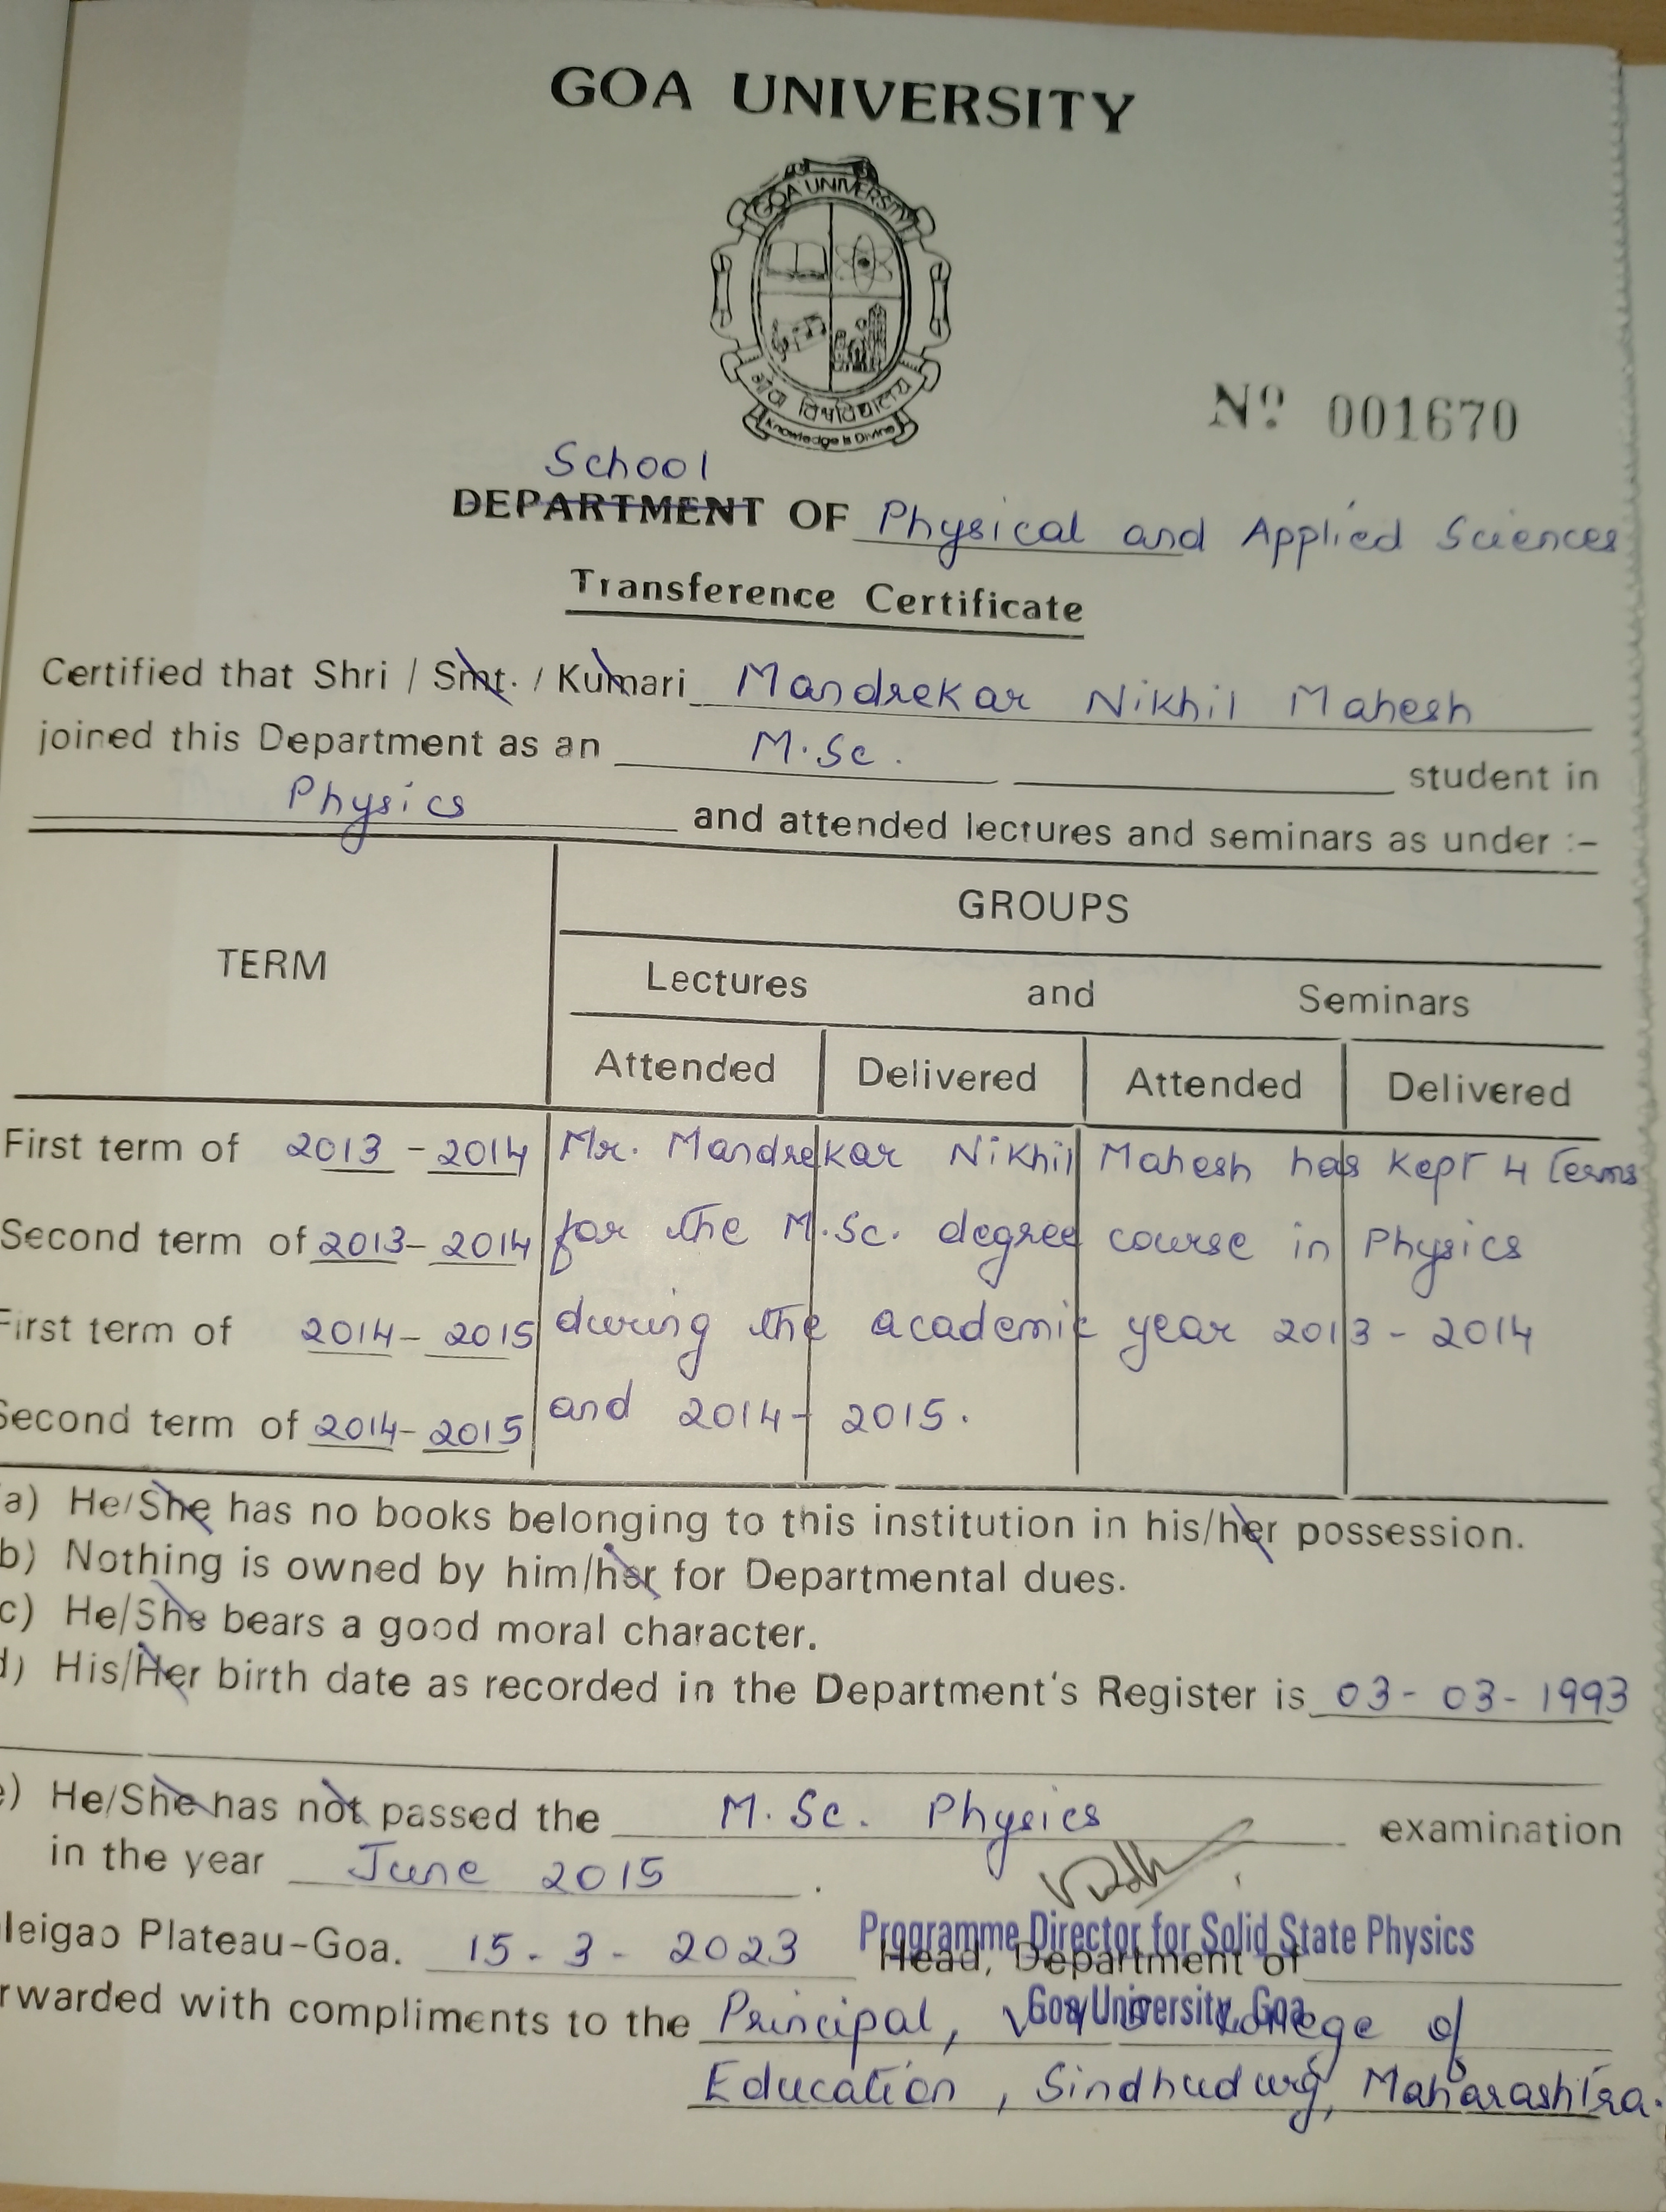 GOA UNIVERSITY
GOA UNIVERSITY
गोंय विश्वविद्यालय
Knowledge is Divine
Nº 001670
School
DEPARTMENT OF Physical and Applied Sciences
Transference Certificate
Certified that Shri / Smt. / Kumari Mandrekar Nikhil Mahesh
joined this Department as an M.Sc. student in
Physics and attended lectures and seminars as under :-
GROUPS
TERM
Lectures and Seminars
Attended Delivered Attended Delivered
First term of 2013 - 2014 Mr. Mandrekar Nikhil Mahesh has kept 4 terms
Second term of 2013- 2014 for the M.Sc. degree course in Physics
First term of 2014- 2015 during the academic year 2013 - 2014
Second term of 2014- 2015 and 2014 - 2015.
a) He/She has no books belonging to this institution in his/her possession.
b) Nothing is owned by him/her for Departmental dues.
c) He/She bears a good moral character.
d) His/Her birth date as recorded in the Department's Register is 03- 03- 1993
e) He/She has not passed the M. Sc. Physics examination
in the year June 2015.
leigao Plateau-Goa. 15- 3- 2023 Programme Director for Solid State Physics
Head, Department of
Goa University, Goa
rwarded with compliments to the Principal, College of
Education, Sindhudurg, Maharashtra.